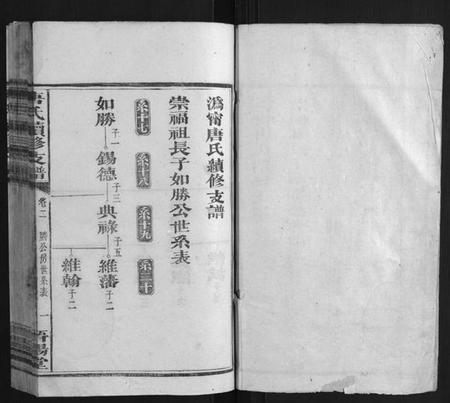 溈甯唐氏續修支譜
崇福祖長子如勝公世系表
系十七
系十八
系十九
系二十
如勝 子一
錫德 子三
典祿 子五
維藩 子二
維翰 子二
唐氏續修支譜
卷二
勝公房世系表
一
晉陽堂